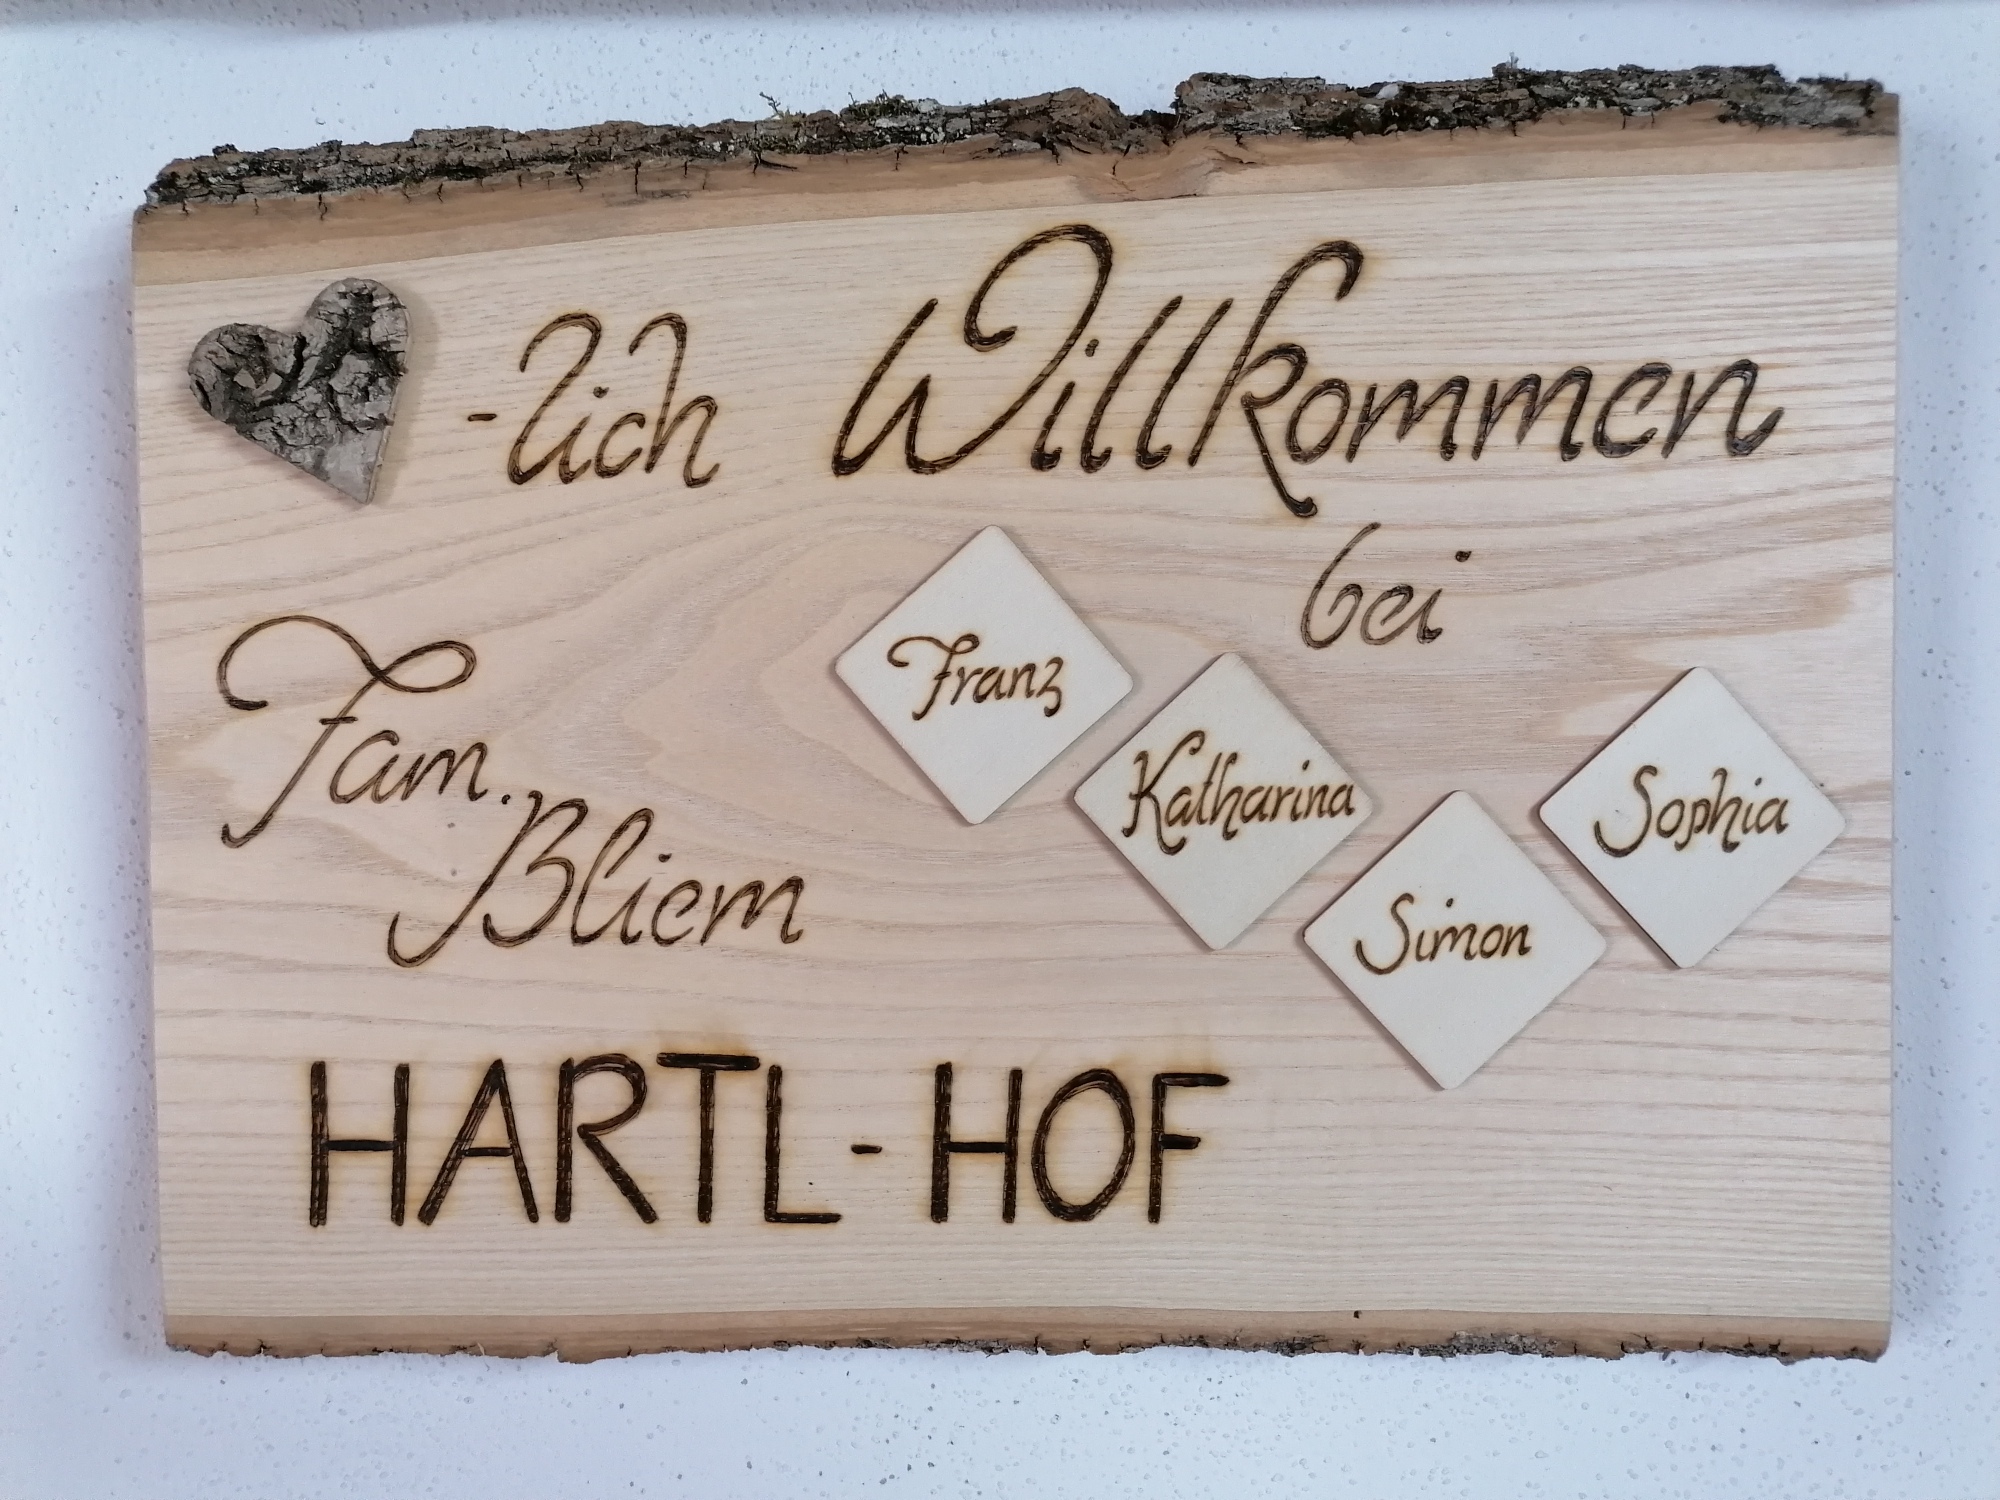 -lich Willkommen
bei
Franz
Katharina
Simon
Sophia
Fam.
Bliem
HARTL-HOF